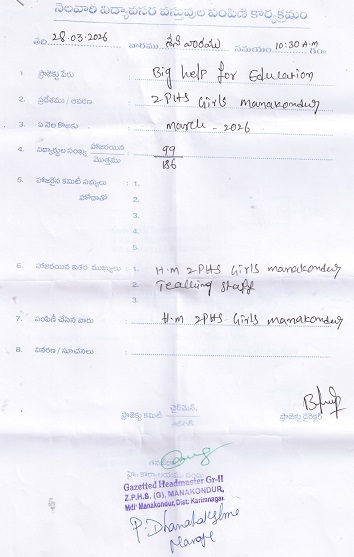 నెలవారి విద్యావసర వస్తువుల పంపిణి కార్యక్రమం
తేది. 28.03.2026 వారము శనివారము సమయం 10:30 A.M గం॥
1. ప్రాజెక్టు పేరు : Big help for Education
2. ప్రదేశము / ఆవరణ : ZPHS Girls manakondur
3. ఏ నెల కొఱకు : march - 2026
4. విద్యార్థుల సంఖ్య హాజరయిన / మొత్తము : 99 / 186
5. హాజరైన కమిటీ సభ్యులు : 1.
హోదాతో 2.
3.
4.
5.
6. హాజరయిన ఇతర ముఖ్యులు : 1. H.M ZPHS Girls manakondur
2. Teaching staff
3.
7. పంపిణీ చేసిన వారు : H.M ZPHS Girls manakondur
8. వివరణ / సూచనలు :
ప్రాజెక్టు కమిటి చైర్మెన్,
ప్రాజెక్టు డైరెక్టర్
Gazetted Headmaster Gr-II
Z.P.H.S. (G), MANAKONDUR,
Mdl: Manakondur, Dist: Karimnagar.
P. Dhanalakshmi